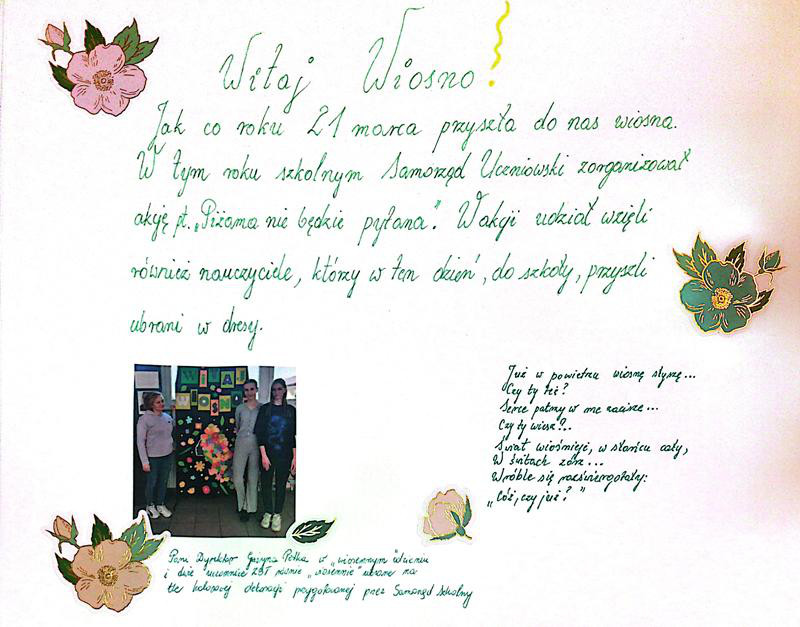 Witaj Wiosno!
Jak co roku 21 marca przyszła do nas wiosna.
W tym roku szkolnym Samorząd Uczniowski zorganizował
akcję pt. „Piżama nie będzie pytana”. W akcji udział wzięli
również nauczyciele, którzy w ten dzień, do szkoły, przyszli
ubrani w dresy.
WITAJ
WIOSNO
Już w powietrzu wiosnę słyszę...
Czy ty też?
Serce palmy w me zacisze...
Czy ty wiesz?..
Świat wiośnieje, w słońcu cały,
W świtach zórz...
Wróble się rozświergotały:
„Cóż, czy już?”
Pani Dyrektor Grażyna Pełka w „wiosennym wdzianiu
i dwie uczennice ZST równie „wiosennie” ubrane na
tle kolorowej dekoracji przygotowanej przez Samorząd Szkolny